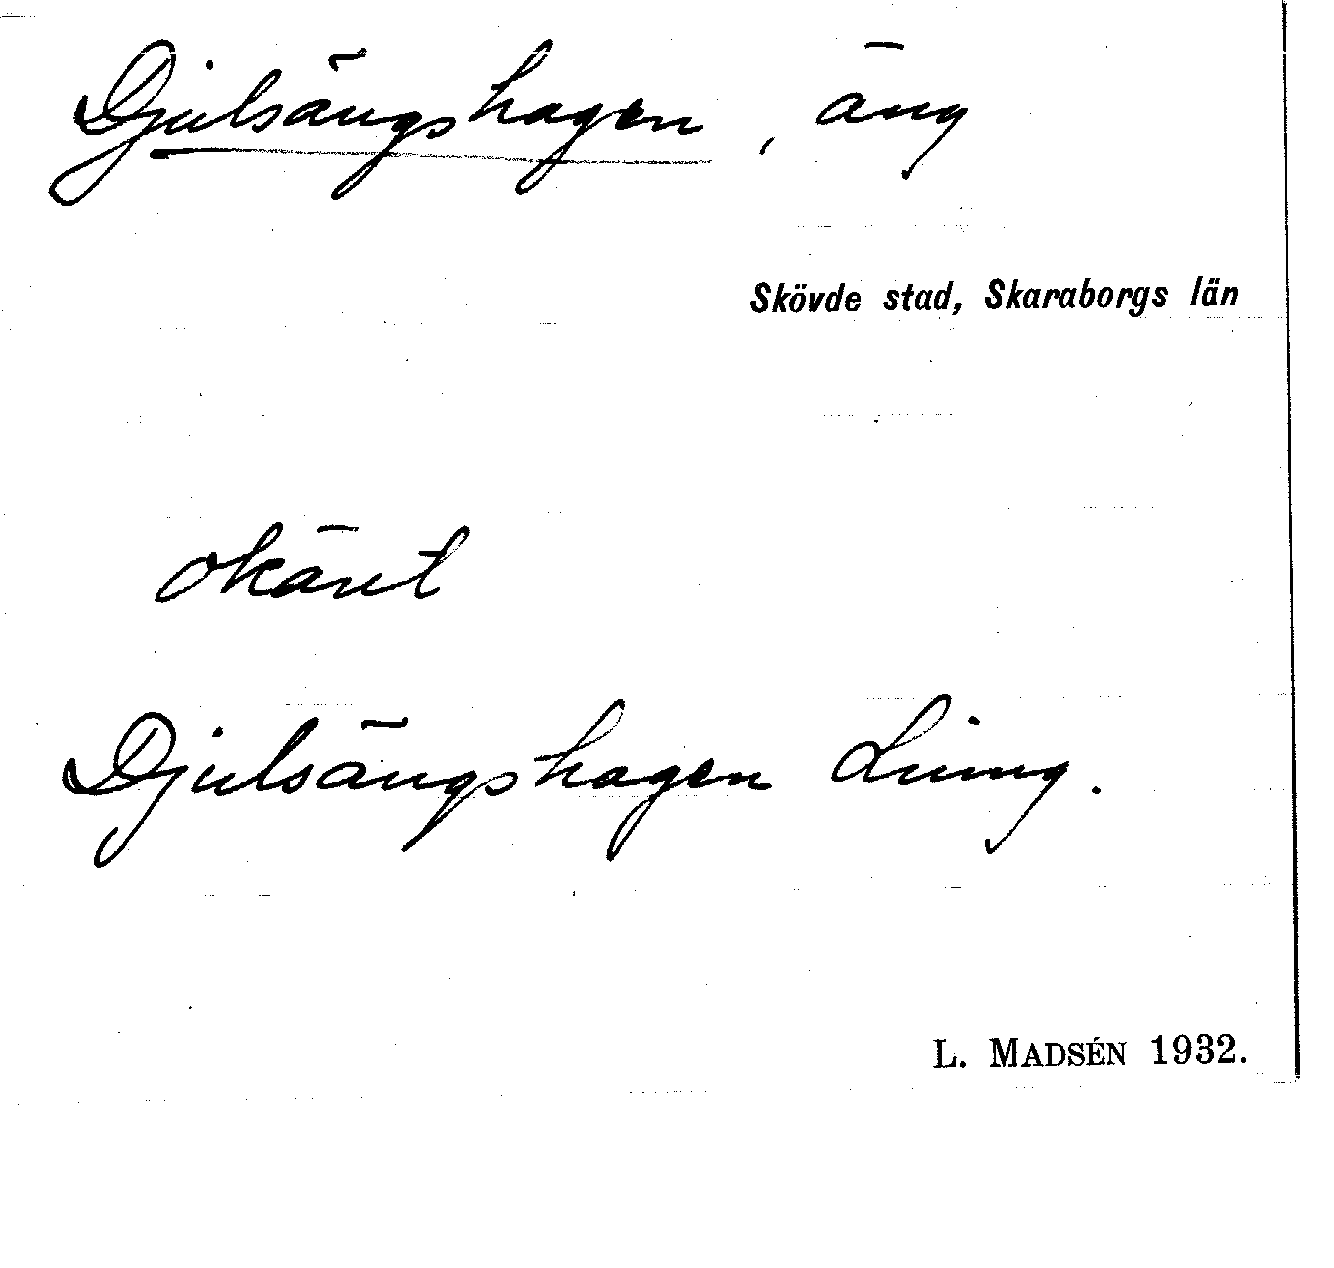 Djulsängshagen, äng
Skövde stad, Skaraborgs län
okänt
Djulsängshagen Ljung.
L. MADSÉN 1932.